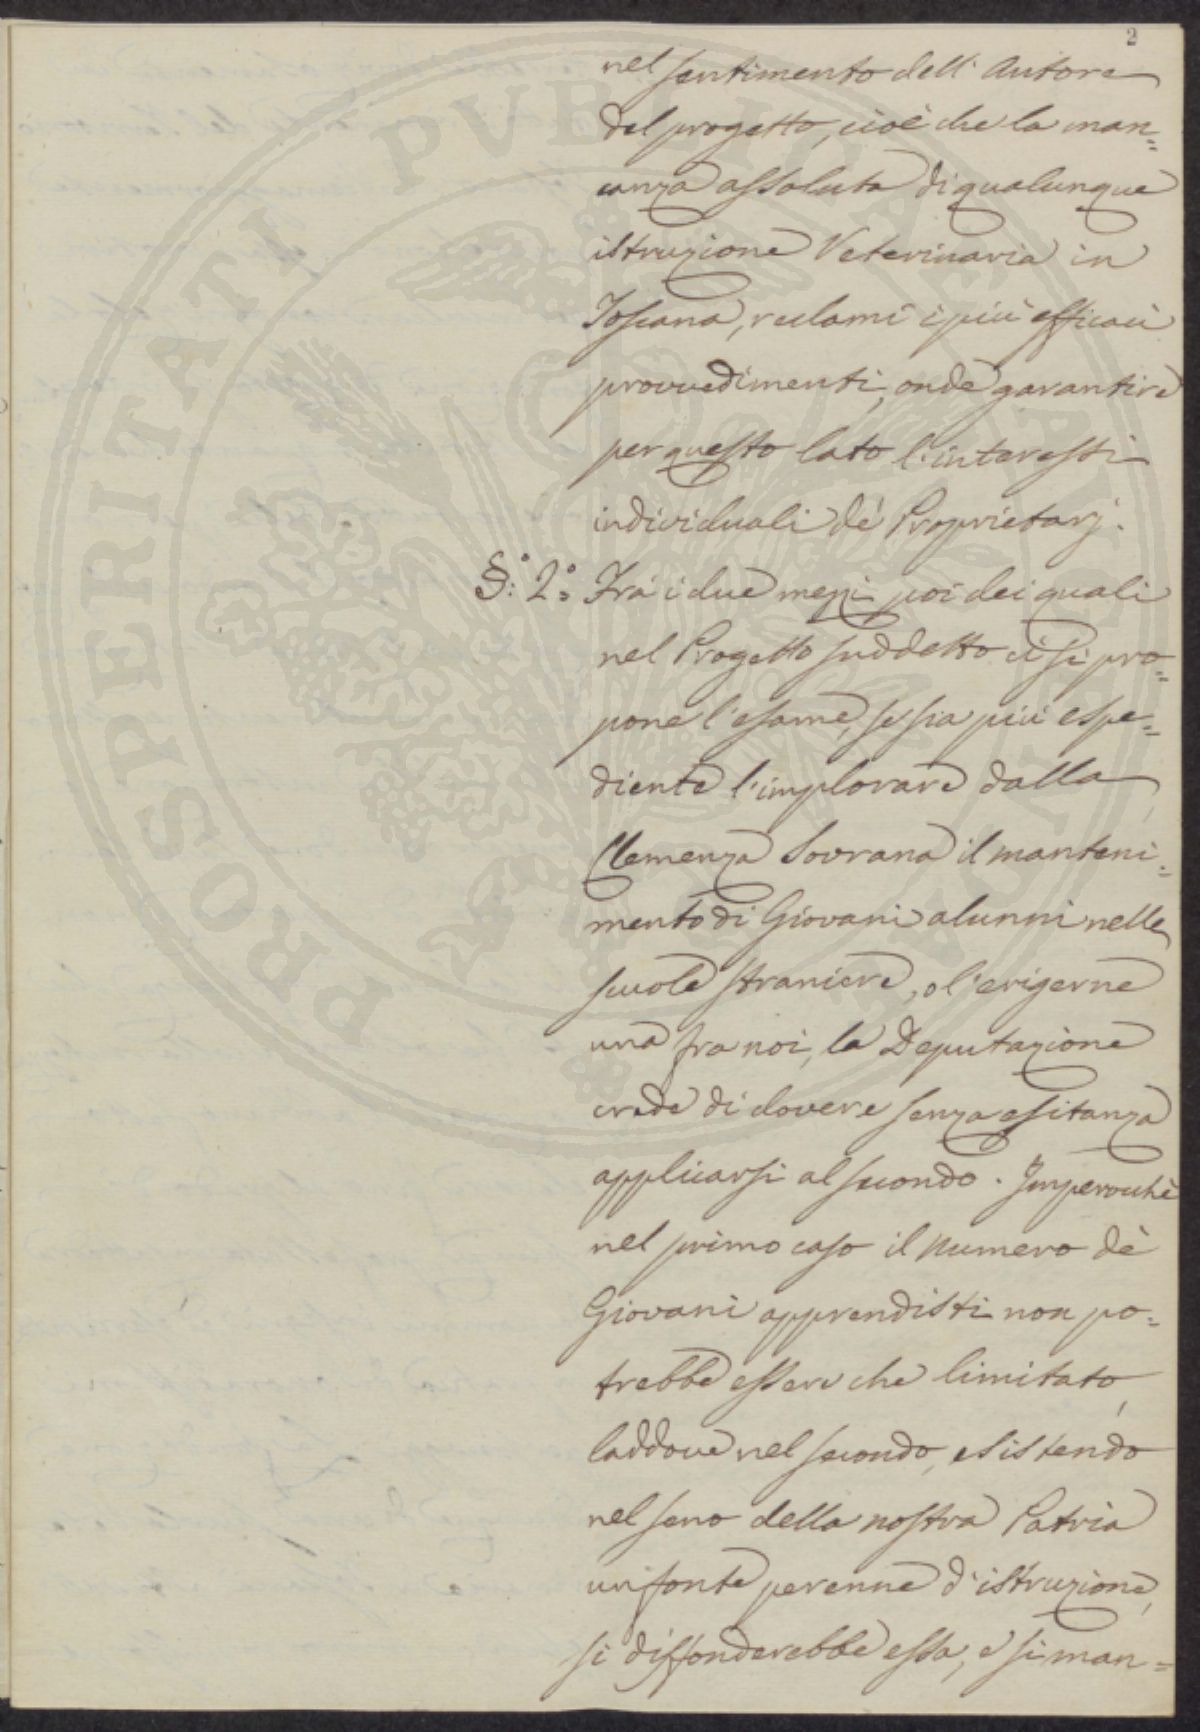 2
nel sentimento dell' Autore
del progetto, cioè che la man=
canza assoluta di qualunque
istruzione Veterinaria in
Toscana, reclami i più efficaci
provvedimenti, onde garantire
per questo lato l'interessi
individuali de' Proprietarj.
§.° 2.° Frà i due mezzi poi dei quali
nel Progetto suddetto ci si pro=
pone l'esame, se sia più espe=
diente l'implorare dalla
Clemenza Sovrana il manteni=
mento di Giovani alunni nelle
scuole straniere, o l'erigerne
una fra noi, la Deputazione
crede di dovere senza esitanza
applicarsi al secondo. Imperocchè
nel primo caso il numero dè
Giovani apprendisti non po=
trebbe essere che limitato,
laddove nel secondo, esistendo
nel seno della nostra Patria
un fonte perenne d'istruzione,
si diffonderebbe essa, e si man=
PROSPERITATI PVBLICAE